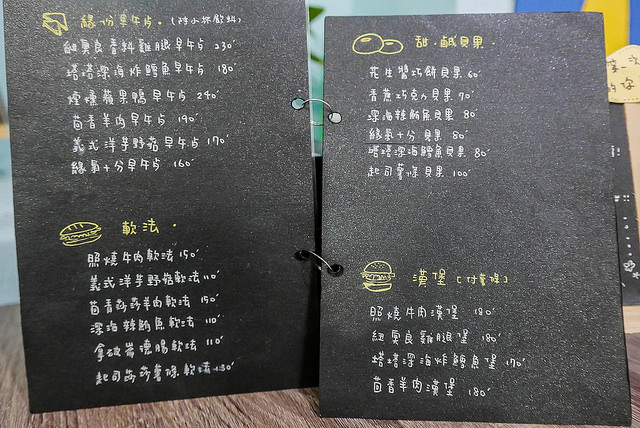 緣份早午点.(附小杯飲料)
紐奧良香料雞腿早午点 230
塔塔深海炸鱈魚早午点 180
煙燻蘋果鴨早午点 240
茴香羊肉早午点 190
義式洋芋野菇早午点 170
緣氣十分早午点 160
軟法.
照燒牛肉軟法 150
義式洋芋野菇軟法 110
茴香莎莎羊肉軟法 150
深海辣鮪魚軟法 110
拿破崙德腸軟法 110
起司莎莎薯條軟法 130
甜.鹹貝果.
花生醬巧餅貝果 60
香蕉巧克力貝果 70
深海辣鮪魚貝果 80
緣氣十分貝果 80
塔塔深海鱈魚貝果 80
起司薯條貝果 100
漢堡(付薯條)
照燒牛肉漢堡 180
紐奧良雞腿堡 180
塔塔深海炸鱈魚堡 170
茴香羊肉漢堡 180